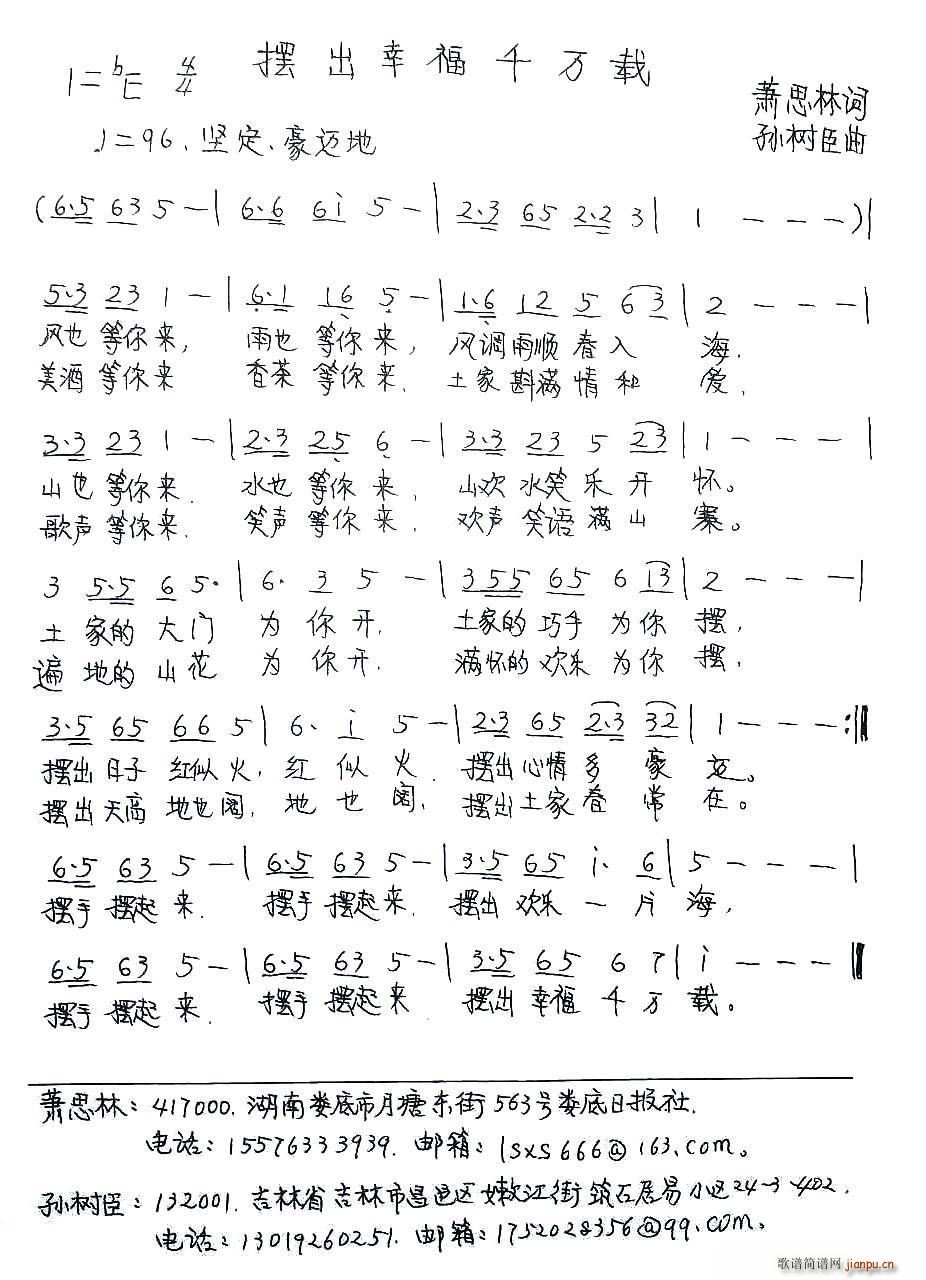 摆出幸福千万载
1=bE 4/4
萧思林词
♩=96、坚定、豪迈地
孙树臣曲
(6·5 63 5 - | 6·6 6i 5 - | 2·3 65 2·2 3 | 1 - - - )|
5·3 23 1 - | 6·1 16 5 - | 1·6 12 5 63 | 2 - - - |
风也等你来, 雨也等你来, 风调雨顺春入海,
美酒等你来 香茶等你来, 土家斟满情和爱,
3·3 23 1 - | 2·3 25 6 - | 3·3 23 5 23 | 1 - - - |
山也等你来. 水也等你来, 山欢水笑乐开怀。
歌声等你来. 笑声等你来. 欢声笑语满山寨。
3 5·5 6 5· | 6· 3 5 - | 355 65 6 i3 | 2 - - - |
土家的大门为你开. 土家的巧手为你摆,
遍地的山花为你开, 满怀的欢乐为你摆,
3·5 65 66 5 | 6· i 5 - | 2·3 65 2·3 32 | 1 - - - :‖
摆出日子红似火, 红似火. 摆出心情多豪迈。
摆出天高地也阔, 地也阔, 摆出土家春常在。
6·5 63 5 - | 6·5 63 5 - | 3·5 65 i· 6 | 5 - - - |
摆手摆起来. 摆手摆起来. 摆出欢乐一片海,
6·5 63 5 - | 6·5 63 5 - | 3·5 65 6 7 | i - - - ‖
摆手摆起来. 摆手摆起来 摆出幸福千万载。
萧思林: 417000. 湖南娄底市月塘东街563号娄底日报社.
电话: 15576333939. 邮箱: lsxs666@163.com。
孙树臣: 132001. 吉林省吉林市昌邑区嫩江街筑石居易小区24-3-402.
电话: 13019260251. 邮箱: 1752028356@qq.com.
歌谱简谱网 jianpu.cn